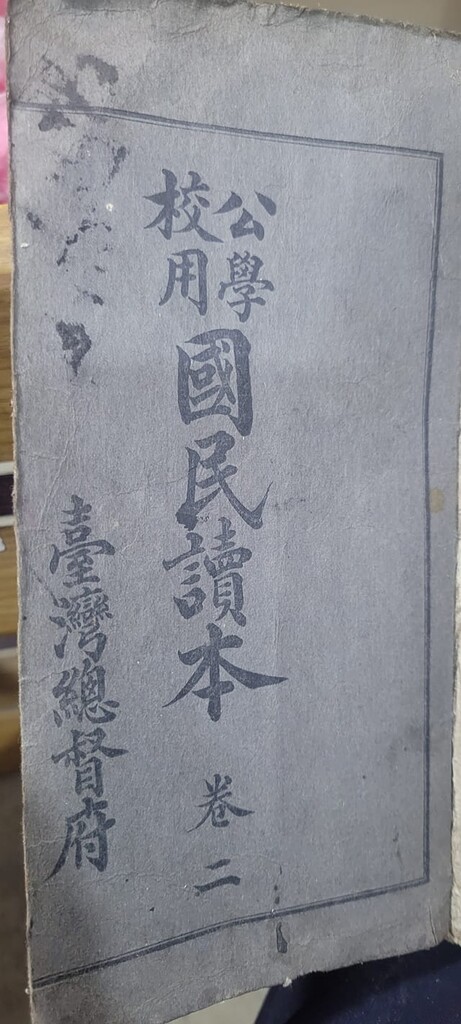 公學
校用
國民讀本
卷二
臺灣總督府